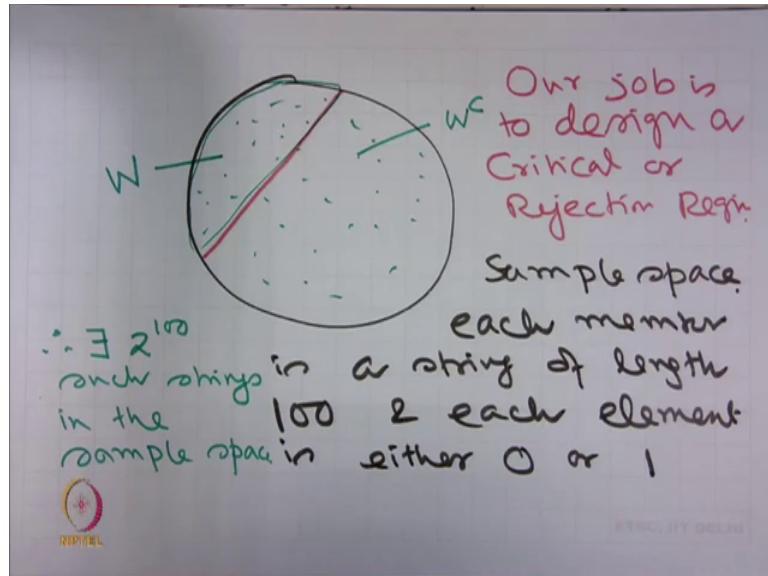 Our job is
to design a
Critical or
Rejection Regin.
W
Wᶜ
Sample space.
each member
is a string of length
100 & each element
is either 0 or 1
∴ ∃ 2¹⁰⁰
such strings
in the
sample space
NPTEL
ETSC, IIT DELHI